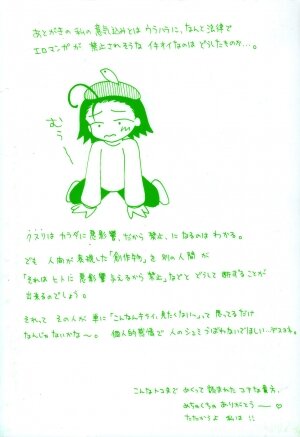 あとがきの私の意気込みとはウラハラに、なんと法律で
エロマンガが禁止されそうなイキオイなのはどうしたものか…。
むぅー
クスリはカラダに悪影響、だから禁止、になるのはわかる。
でも人間が表現した「創作物」を別の人間が
「それはヒトに悪影響与えるから禁止」などとどうして断ずることが
出来るのでしょう。
それってその人が単に「こんなんキライ、見たくない!」って思ってるだけ
なんじゃないかな〜。個人的感情で人のシュミうばわないでほしい…デスヨネ。
こんなトコまでめくって読まれたステキな貴方、
めちゃくちゃありがとう〜♡
たたかうよ私は!!